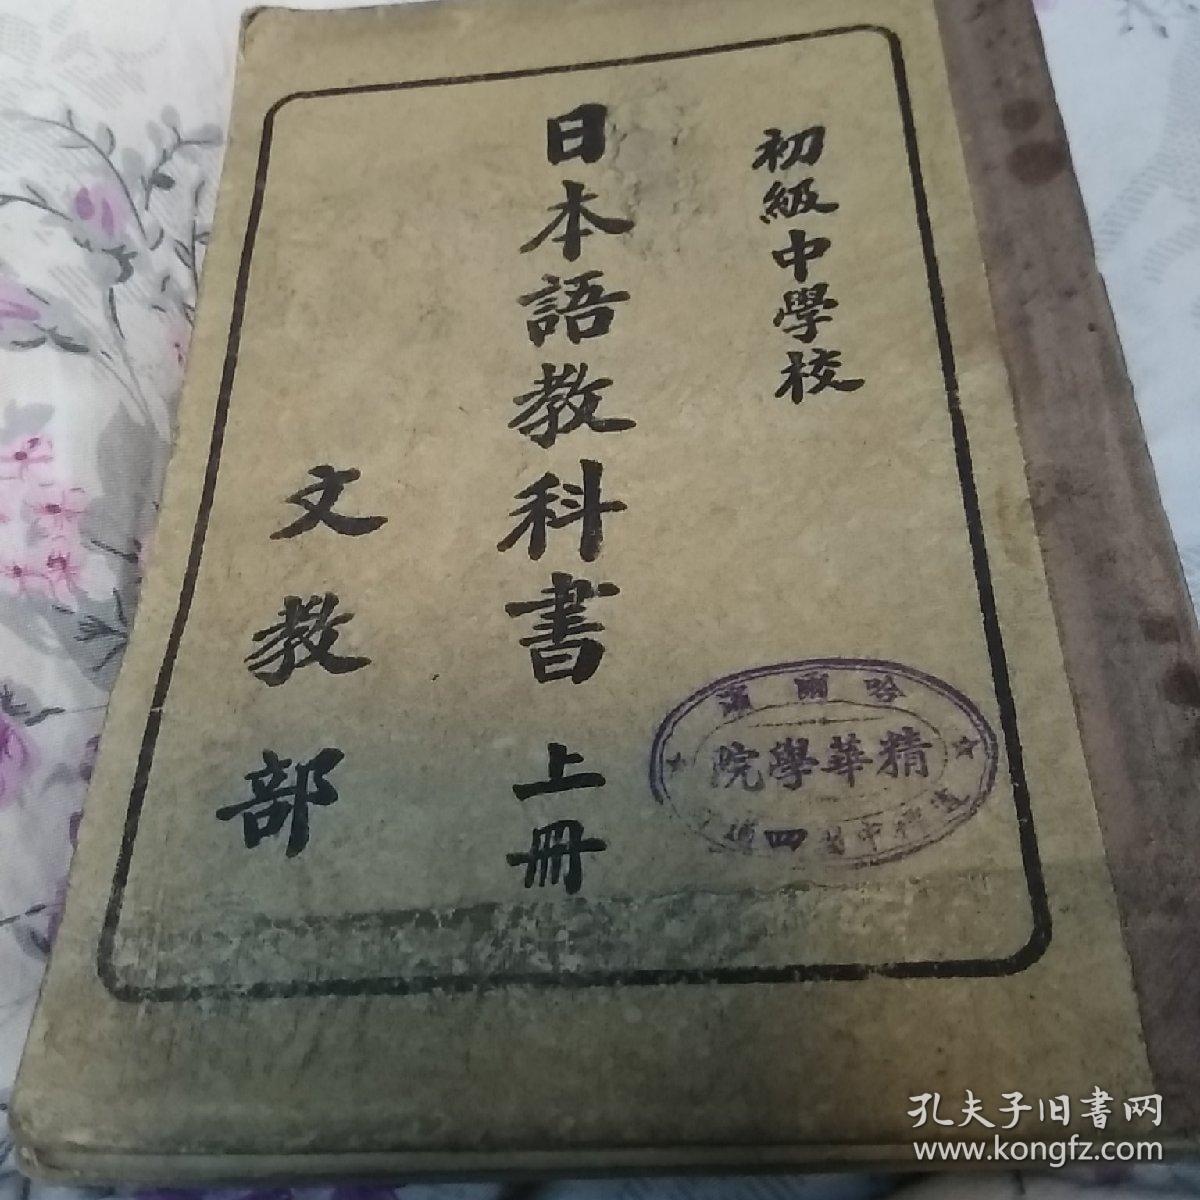 初級中學校
日本語教科書 上冊
文教部
哈爾濱
精華學院
孔夫子旧书网
www.kongfz.com